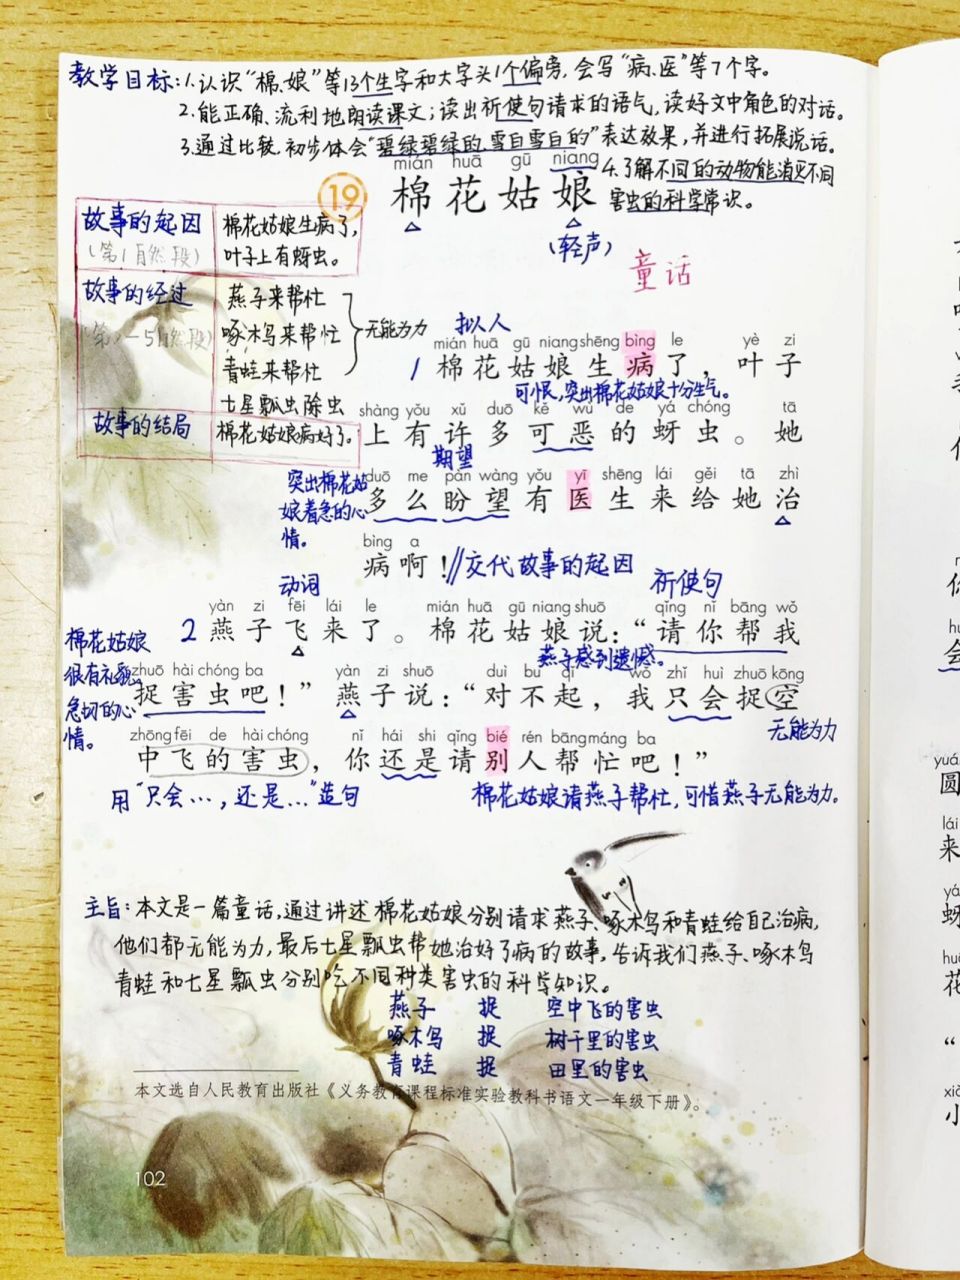 教学目标：1.认识“棉、娘”等13个生字和大字头1个偏旁，会写“病、医”等7个字。
2.能正确、流利地朗读课文；读出祈使句请求的语气，读好文中角色的对话。
3.通过比较，初步体会“碧绿碧绿的、雪白雪白的”表达效果，并进行拓展说话。
4.了解不同的动物能消灭不同
害虫的科学常识。
mián huā gū niang
19 棉花姑娘
（轻声）
童话
故事的起因
（第1自然段）
棉花姑娘生病了，
叶子上有蚜虫。
故事的经过
燕子来帮忙
啄木鸟来帮忙
青蛙来帮忙
无能为力
七星瓢虫除虫
故事的结局
棉花姑娘病好了。
拟人
mián huā gū niang shēng bìng le yè zi
1 棉花姑娘生病了，叶子
可恨，突出棉花姑娘十分生气。
shàng yǒu xǔ duō kě wù de yá chóng tā
上有许多可恶的蚜虫。她
期望
突出棉花姑
娘着急的心
情。
duō me pàn wàng yǒu yī shēng lái gěi tā zhì
多么盼望有医生来给她治
bìng a
病啊！//交代故事的起因
动词
祈使句
yàn zi fēi lái le mián huā gū niang shuō qǐng nǐ bāng wǒ
2 燕子飞来了。棉花姑娘说：“请你帮我
棉花姑娘
很有礼貌，
急切的心
情。
燕子感到遗憾。
zhuō hài chóng ba yàn zi shuō duì bu qǐ wǒ zhǐ huì zhuō kōng
捉害虫吧！”燕子说：“对不起，我只会捉空
无能为力
zhōng fēi de hài chóng nǐ hái shi qǐng bié rén bāng máng ba
中飞的害虫，你还是请别人帮忙吧！”
用“只会…，还是…”造句
棉花姑娘请燕子帮忙，可惜燕子无能为力。
主旨：本文是一篇童话，通过讲述棉花姑娘分别请求燕子、啄木鸟和青蛙给自己治病，
他们都无能为力，最后七星瓢虫帮她治好了病的故事。告诉我们燕子、啄木鸟
青蛙和七星瓢虫分别吃不同种类害虫的科学知识。
燕子 捉 空中飞的害虫
啄木鸟 捉 树干里的害虫
青蛙 捉 田里的害虫
本文选自人民教育出版社《义务教育课程标准实验教科书语文一年级下册》。
102
yuá
圆
lái
来
yá
蚜
huā
花
“
小